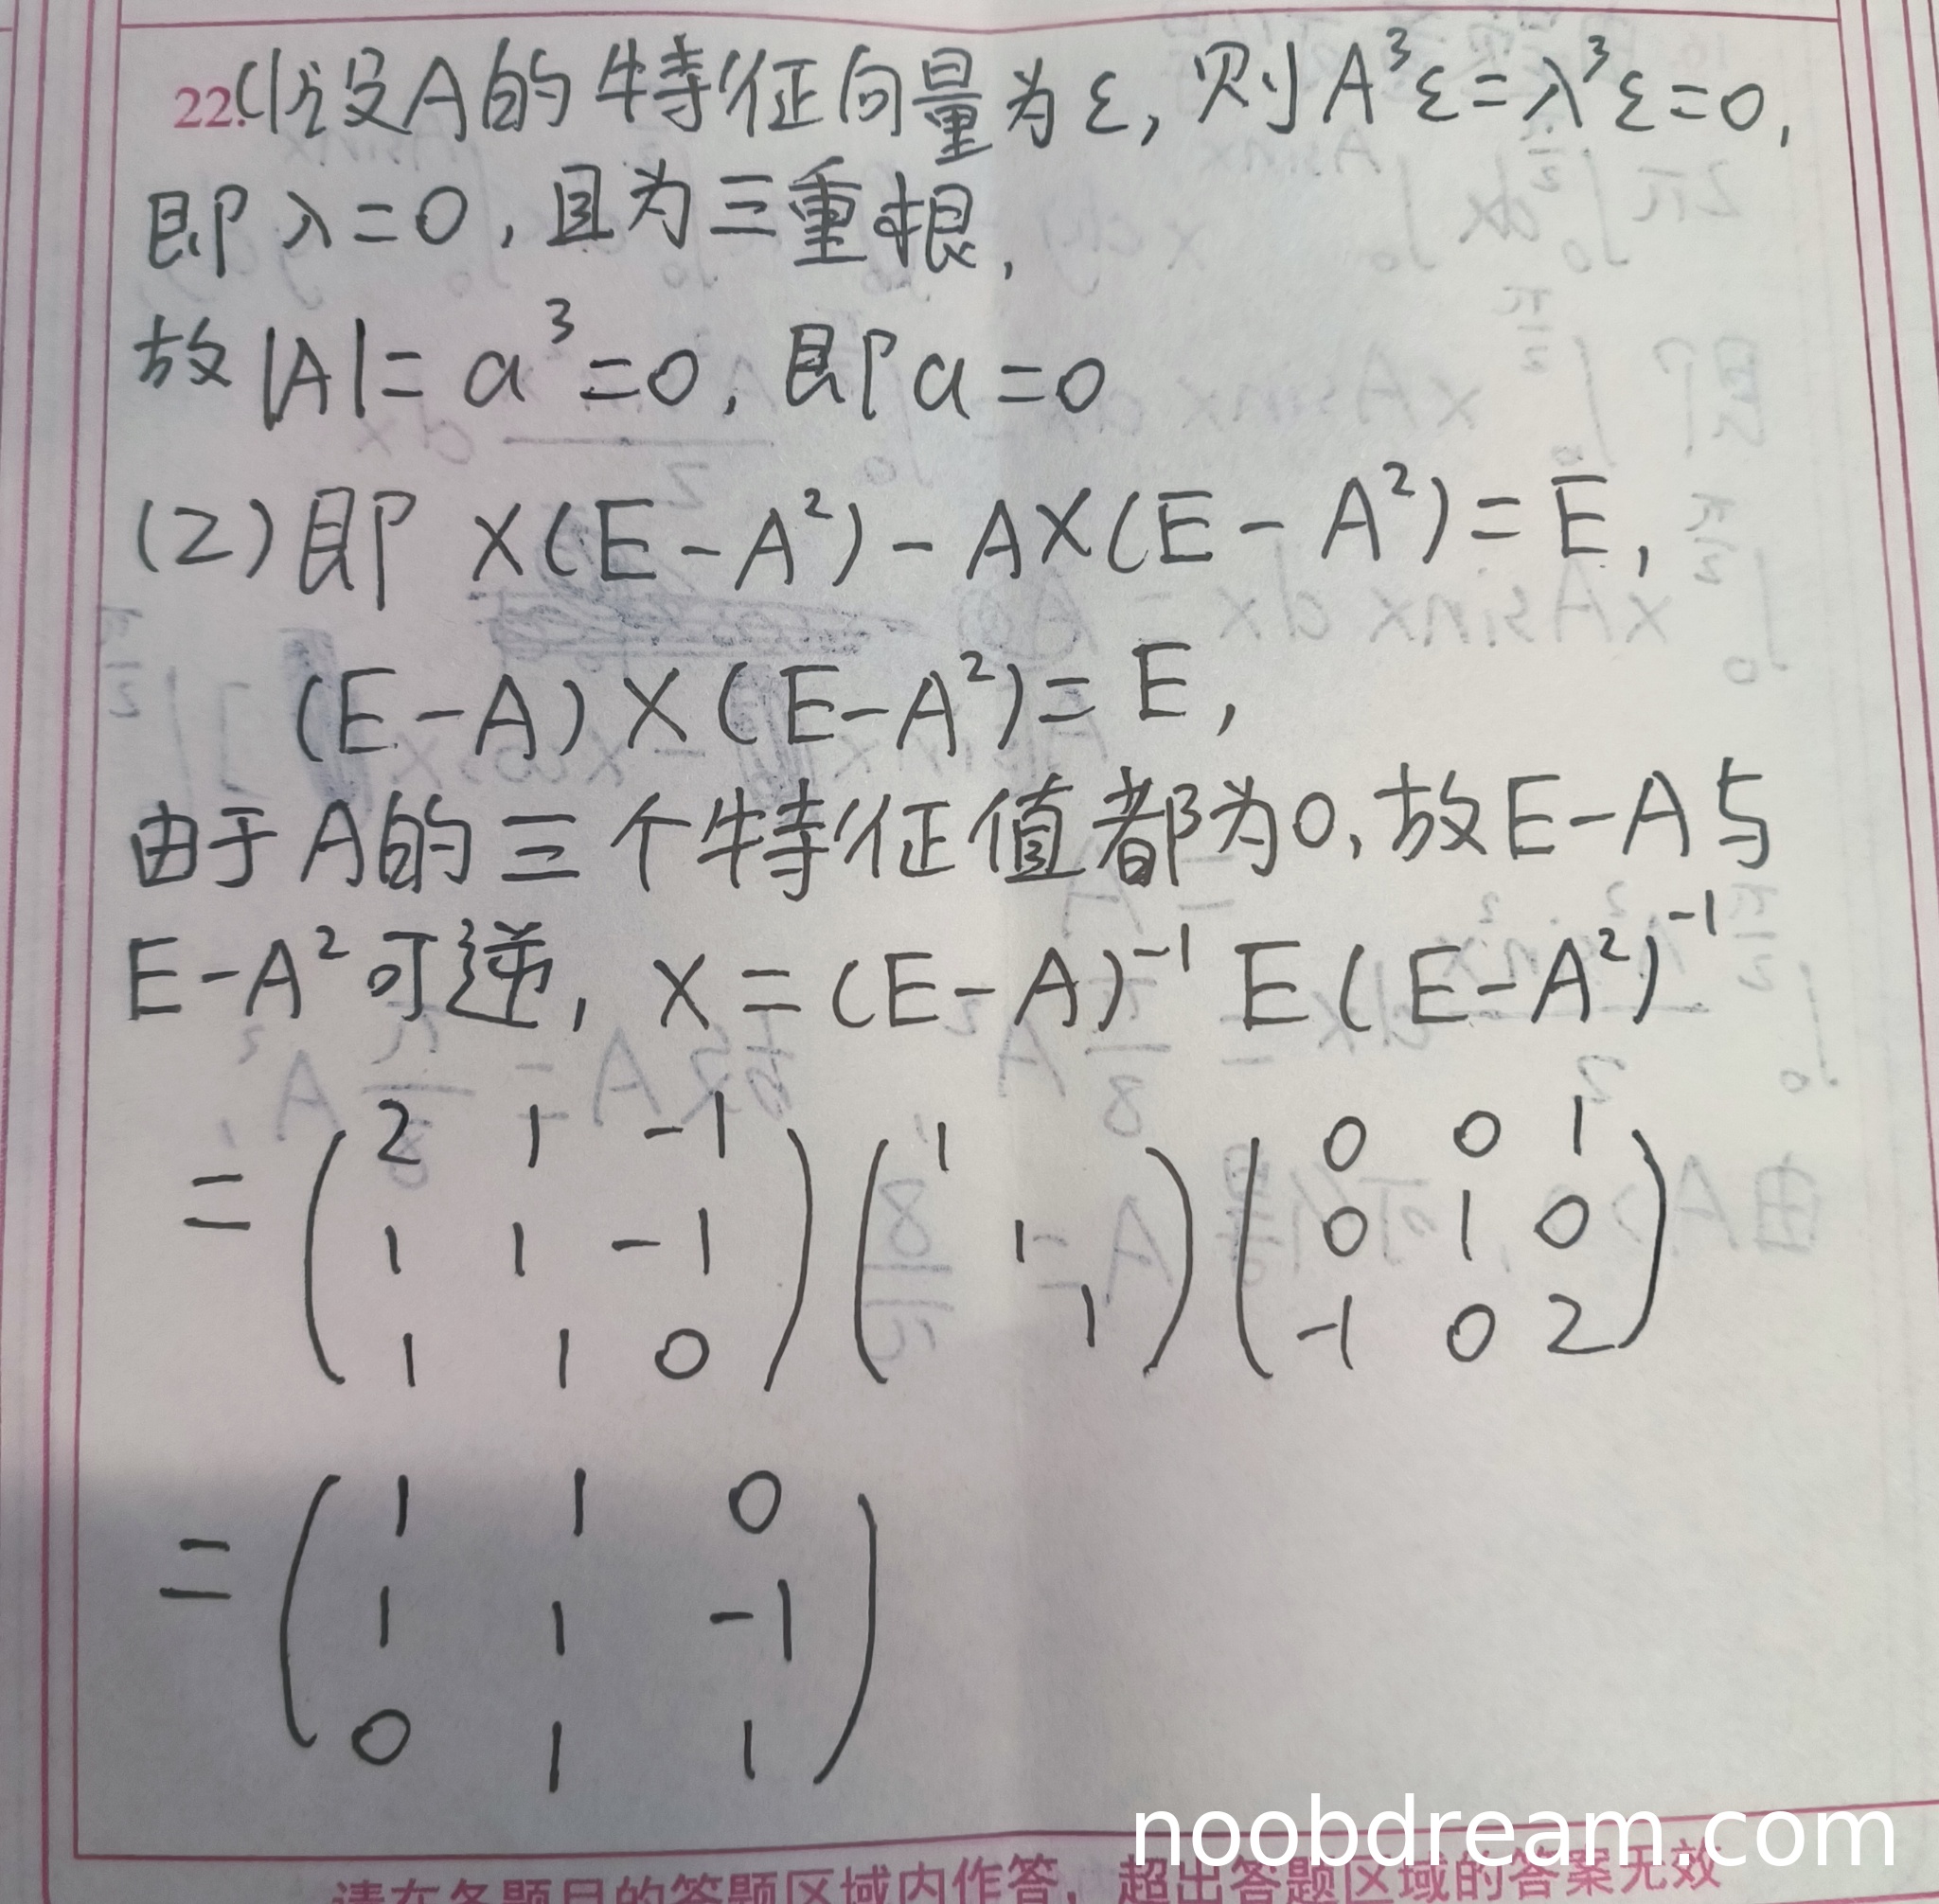 22.(1)设A的特征向量为ε, 则A³ε=λ³ε=0,
即λ=0, 且为三重根,
故|A|=a³=0, 即a=0
(2)即 X(E-A²)-AX(E-A²)=E,
(E-A)X(E-A²)=E,
由于A的三个特征值都为0, 故E-A与
E-A²可逆, X=(E-A)⁻¹E(E-A²)⁻¹
= (2 1 -1) (1) (0 0 1)
(1 1 -1) (1) (0 1 0)
(1 1 0) (1) (-1 0 2)
= (1 1 0)
(1 1 -1)
(0 1 1)
noobdream.com
请在各题目的答题区域内作答, 超出答题区域的答案无效